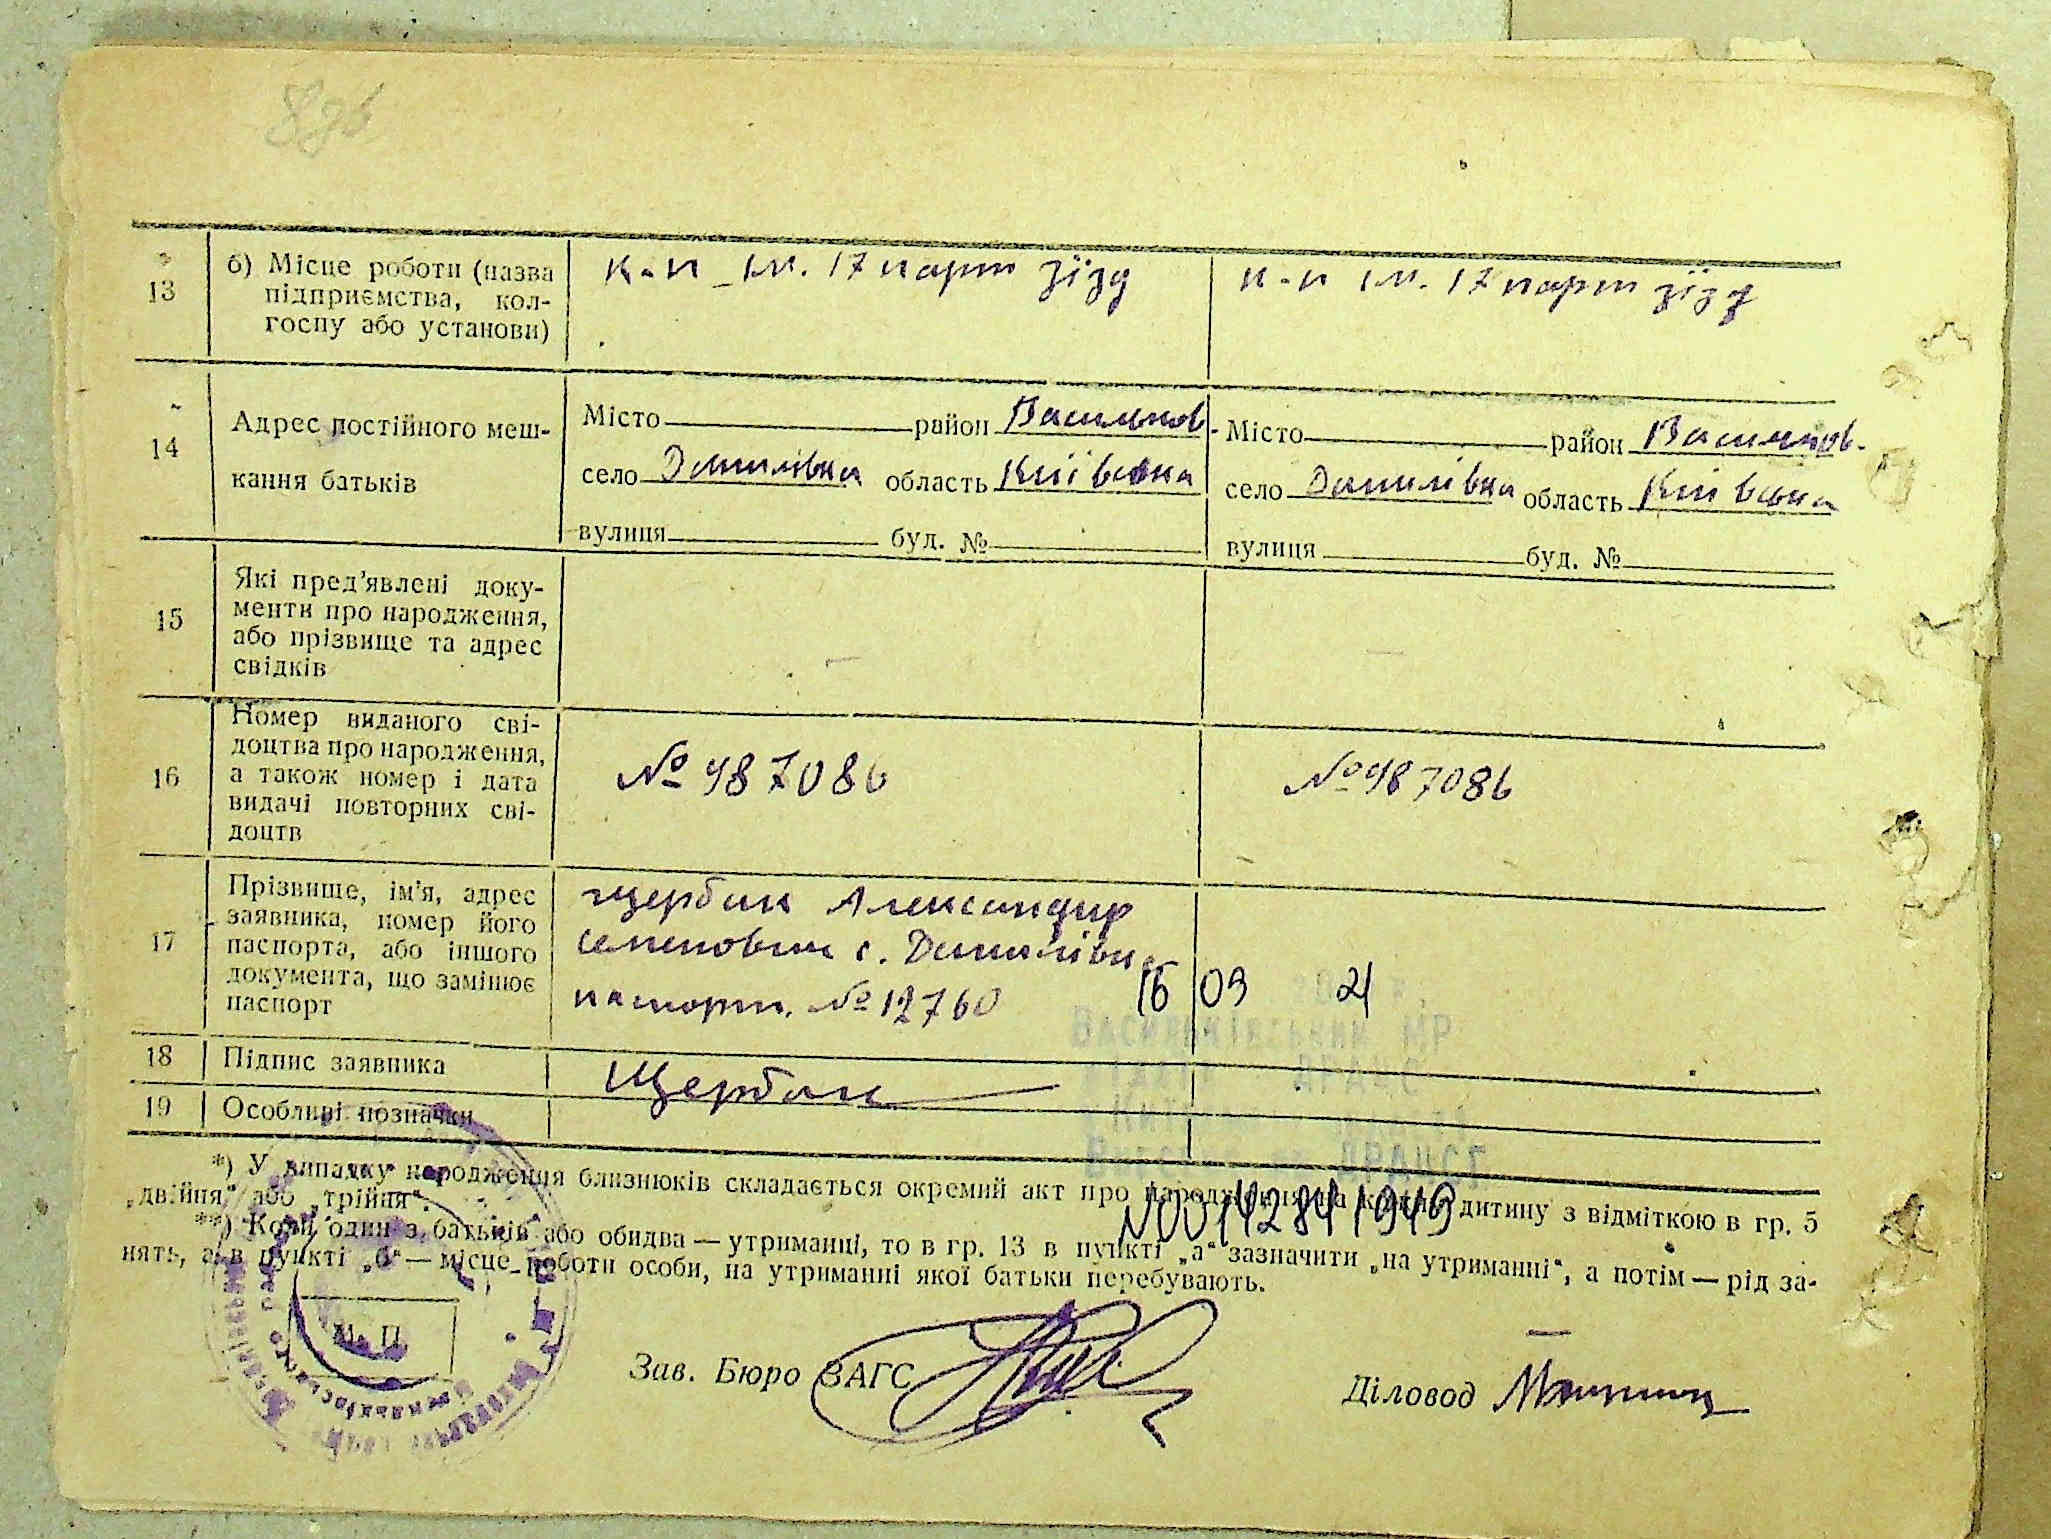 13
б) Місце роботи (назва
підприємства, кол-
госпу або установи)
к-п ім. 17 парт зїзд
к-п ім. 17 парт зїзд
14
Адрес постійного меш-
кання батьків
Місто район Васильков.
село Данилівка область Київська
вулиця буд. №
Місто район Васильков.
село Данилівка область Київська
вулиця буд. №
15
Які пред’явлені доку-
менти про народження,
або прізвище та адрес
свідків
—
—
16
Номер виданого сві-
доцтва про народження,
а також номер і дата
видачі повторних сві-
доцтв
№ 987086
№ 987086
17
Прізвище, ім’я, адрес
заявника, номер його
паспорта, або іншого
документа, що замінює
паспорт
Щербак Александир
Семенович с. Данилівка
паспорт. № 12760
16 09 21
Васильківський МР
ДРАЦС
18 Підпис заявника
Щербак
19 Особливі позначки
*) У випадку народження близнюків складається окремий акт про народження на кожну дитину з відміткою в гр. 5
„двійня“ або „трійня“.
**) Коли один з батьків або обидва — утриманці, то в гр. 13 в пункті „а“ зазначити „на утриманні“, а потім — рід за-
нять, а в пункті „б“ — місце роботи особи, на утриманні якої батьки перебувають.
М. П.
Зав. Бюро ЗАГС
Діловод